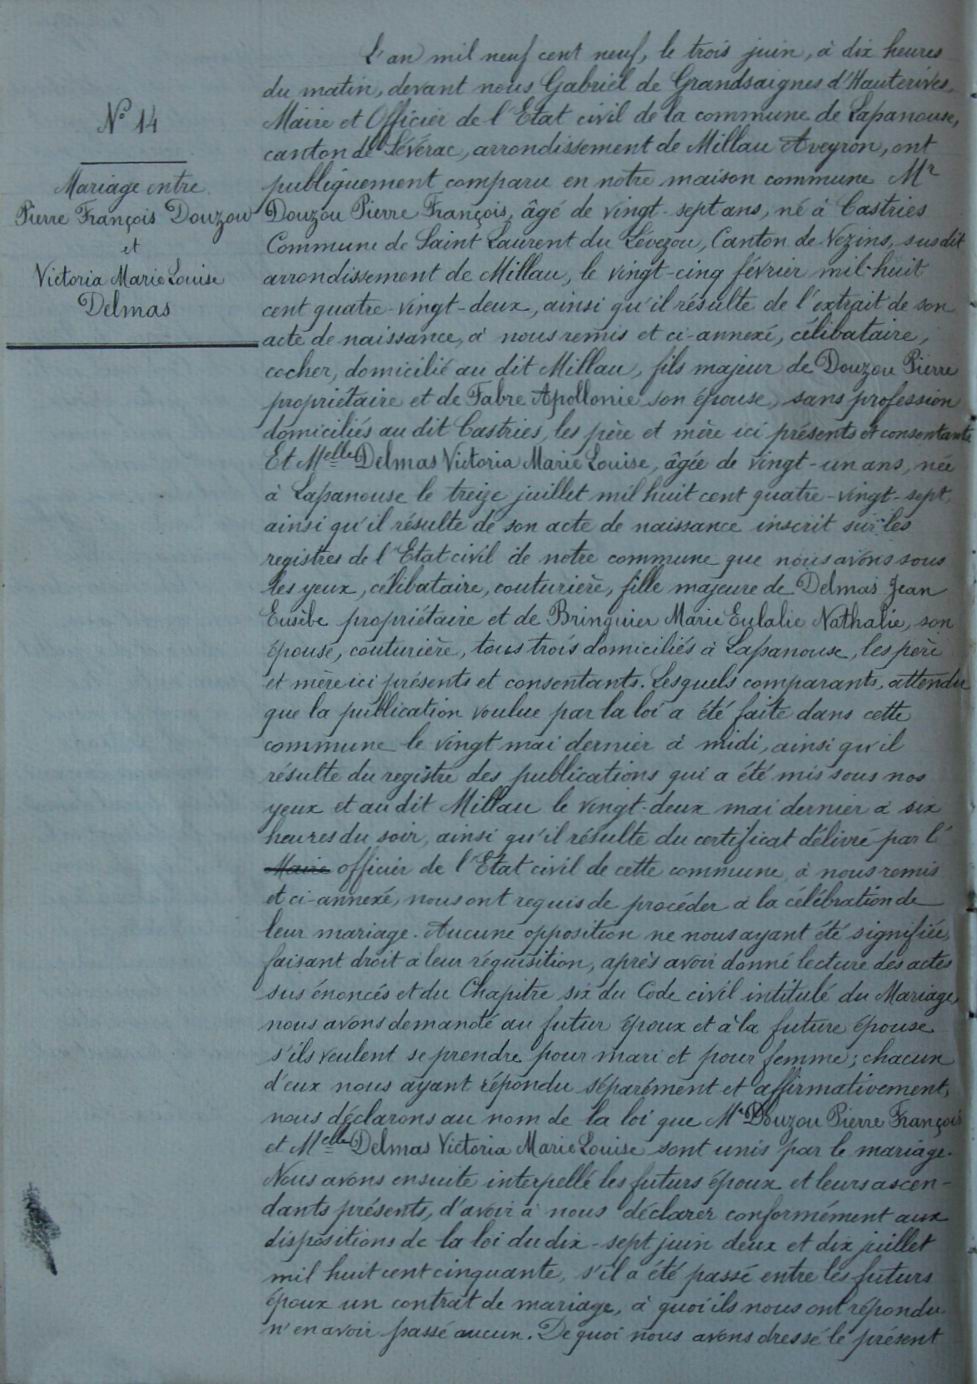 N° 14
Mariage entre
Pierre François Douzou
et
Victoria Marie Louise
Delmas
L'an mil neuf cent neuf, le trois juin, à dix heures
du matin, devant nous Gabriel de Grandsaignes d'Hauterives,
Maire et Officier de l'Etat civil de la commune de Lapanouse,
canton de Sévérac, arrondissement de Millau Aveyron, ont
publiquement comparu en notre maison commune Mr
Douzou Pierre François, âgé de vingt-sept ans, né à Castries
Commune de Saint Laurent du Lévezou, Canton de Vezins, susdit
arrondissement de Millau, le vingt-cinq février mil-huit
cent quatre-vingt-deux, ainsi qu'il résulte de l'extrait de son
acte de naissance, à nous remis et ci-annexé, célibataire,
cocher, domicilié au dit Millau, fils majeur de Douzou Pierre
propriétaire et de Fabre Apollonie son épouse, sans profession
domiciliés au dit Castries, les père et mère ici présents et consentants
Et Melle Delmas Victoria Marie Louise, âgée de vingt-un ans, née
à Lapanouse le treize juillet mil huit cent quatre-vingt-sept,
ainsi qu'il résulte de son acte de naissance inscrit sur les
registres de l'Etat civil de notre commune que nous avons sous
les yeux, célibataire, couturière, fille majeure de Delmas Jean
Eusèbe propriétaire et de Bringuier Marie Eulalie Nathalie, son
épouse, couturière, tous trois domiciliés à Lapanouse, les père
et mère ici présents et consentants. Lesquels comparants, attendu
que la publication voulue par la loi a été faite dans cette
commune le vingt mai dernier à midi, ainsi qu'il
résulte du registre des publications qui a été mis sous nos
yeux et au dit Millau le vingt-deux mai dernier à six
heures du soir, ainsi qu'il résulte du certificat délivré par l'
Maire officier de l'Etat civil de cette commune, à nous remis
et ci-annexé, nous ont requis de procéder à la célébration de
leur mariage. Aucune opposition ne nous ayant été signifiée,
faisant droit à leur réquisition, après avoir donné lecture des actes
sus énoncés et du Chapitre six du Code civil intitulé du Mariage,
nous avons demandé au futur époux et à la future épouse
s'ils veulent se prendre pour mari et pour femme; chacun
d'eux nous ayant répondu séparément et affirmativement,
nous déclarons au nom de la loi que Mr Douzou Pierre François
et Melle Delmas Victoria Marie Louise sont unis par le mariage.
Nous avons ensuite interpellé les futurs époux et leurs ascen-
dants présents, d'avoir à nous déclarer conformément aux
dispositions de la loi du dix-sept juin deux et dix juillet
mil huit cent cinquante, s'il a été passé entre les futurs
époux un contrat de mariage, à quoi ils nous ont répondu
n'en avoir passé aucun. De quoi nous avons dressé le présent